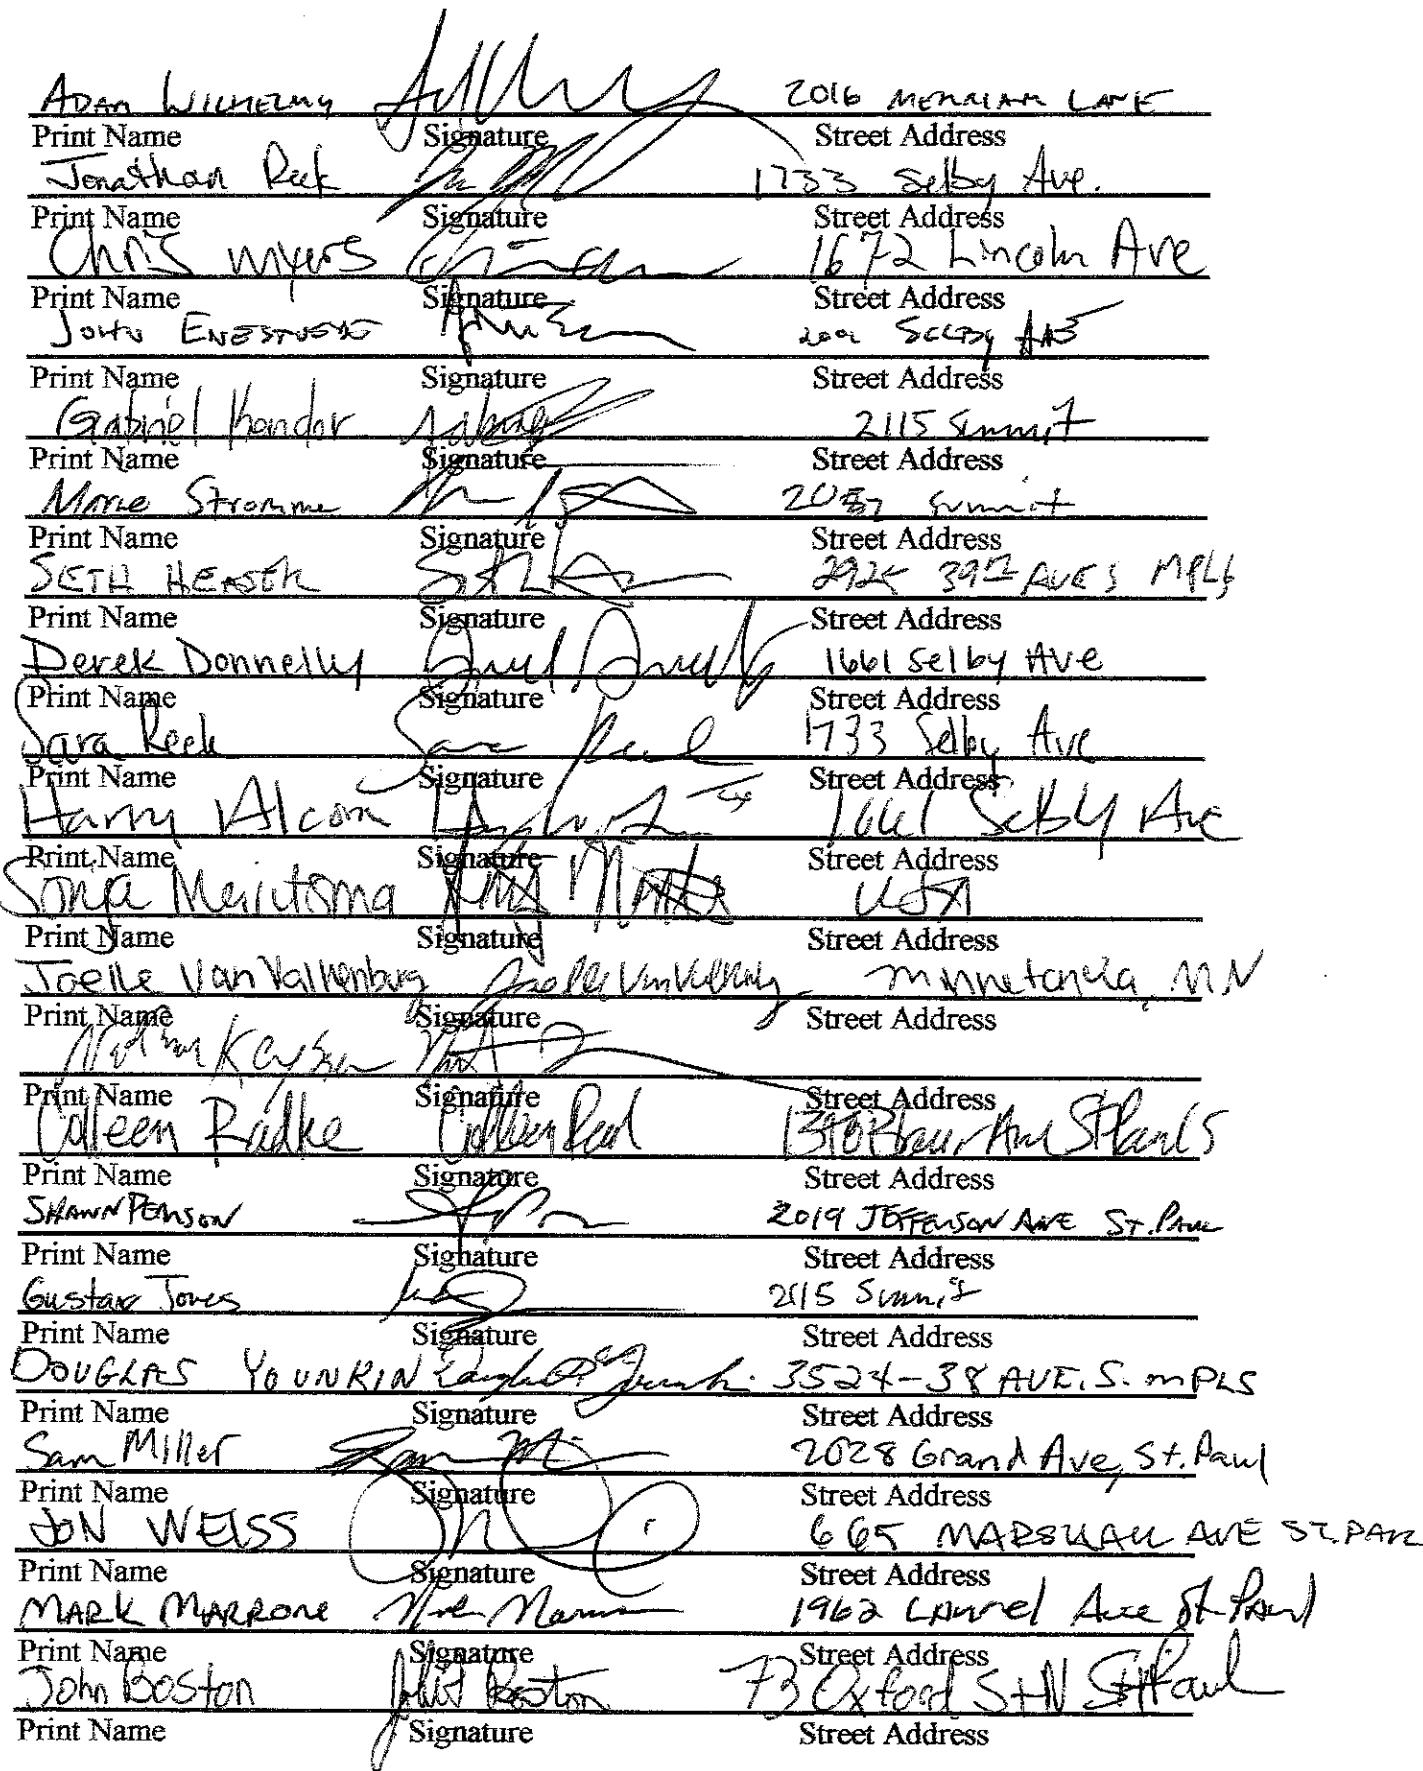 ADAM WILHELMY 2016 MERRIAM LANE
Print Name Signature Street Address
Jonathan Reek 1733 Selby Ave.
Print Name Signature Street Address
Chris Myers 1672 Lincoln Ave
Print Name Signature Street Address
JOHN ENESTVEDT SELBY AVE
Print Name Signature Street Address
Gabriel Kandor 2115 Summit
Print Name Signature Street Address
Stromme Summit
Print Name Signature Street Address
SETH 39th AVE S MPLS
Print Name Signature Street Address
Derek Donnelly 1661 Selby Ave
Print Name Signature Street Address
Sara Reek Sara Reek 1733 Selby Ave
Print Name Signature Street Address
Harry Alcorn 1661 Selby Ave
Print Name Signature Street Address
Sonja USA
Print Name Signature Street Address
Joelle Van Valkenburg Joelle Van Valkenburg Minnetonka, MN
Print Name Signature Street Address
Nathan Kayser
Print Name Signature Street Address
Colleen Radke Colleen Rad Ave St Paul
Print Name Signature Street Address
SHAWN PEARSON 2019 JEFFERSON AVE ST. PAUL
Print Name Signature Street Address
Gustav Jones 2115 Summit
Print Name Signature Street Address
DOUGLAS YOUNKIN 3524-38 AVE. S. MPLS
Print Name Signature Street Address
Sam Miller 2028 Grand Ave, St. Paul
Print Name Signature Street Address
JON WEISS 665 MARSHALL AVE ST. PAUL
Print Name Signature Street Address
MARK MARRONE Mark Marrone 1962 Laurel Ave St Paul
Print Name Signature Street Address
John Boston John Boston 73 Oxford St N St Paul
Print Name Signature Street Address